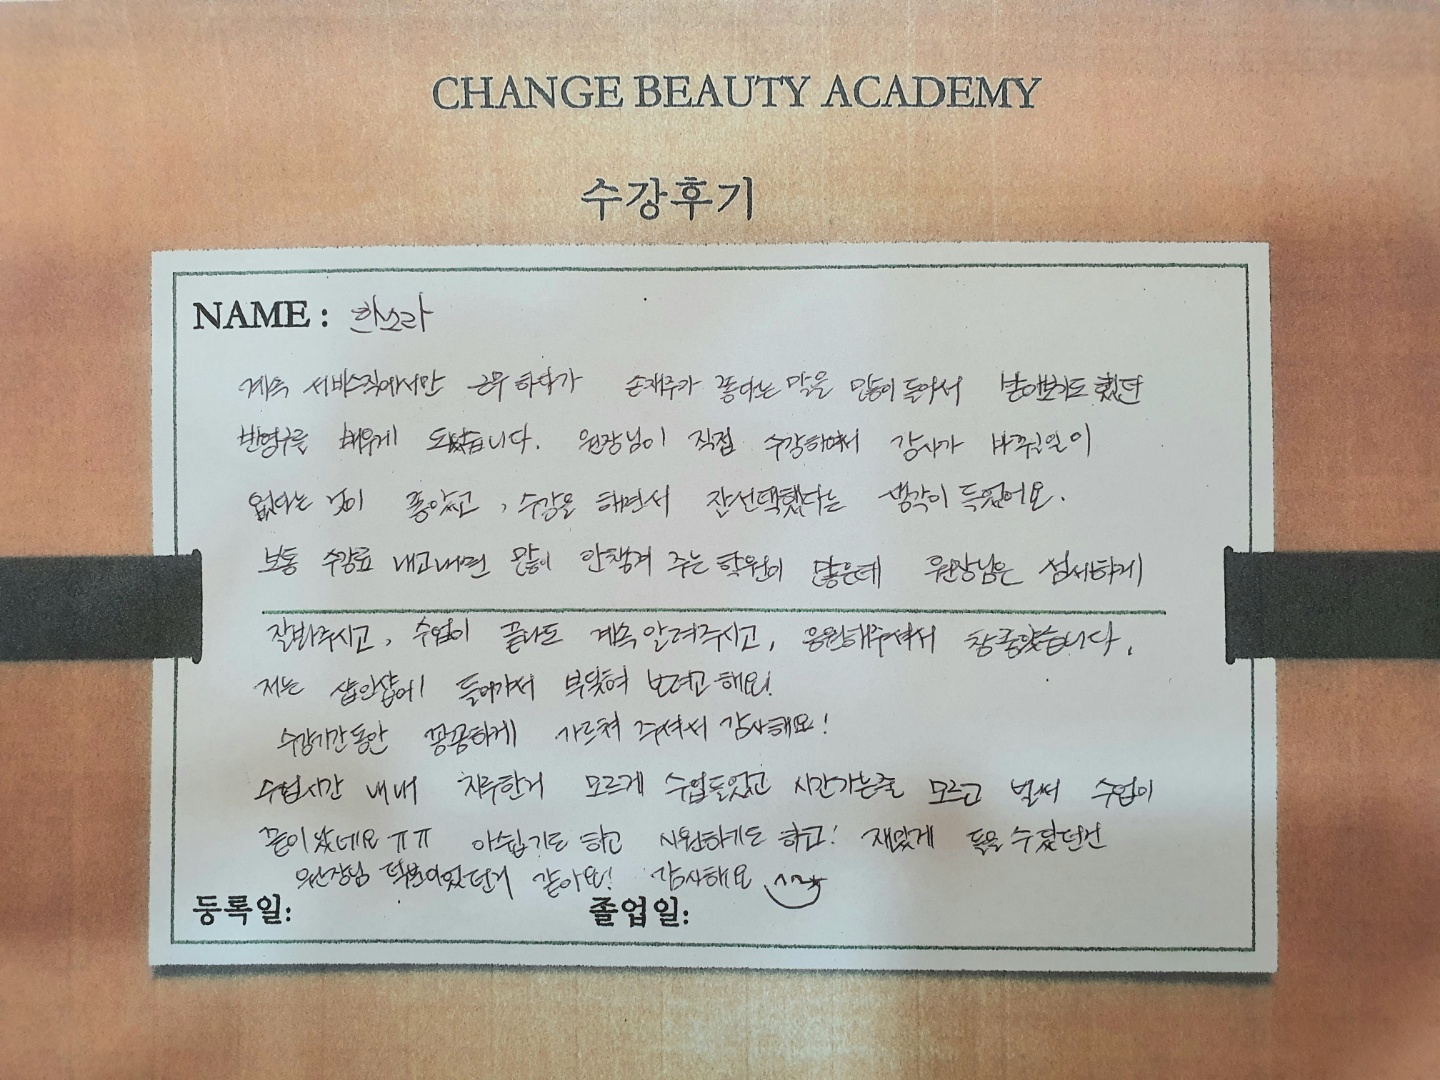 CHANGE BEAUTY ACADEMY
수강후기
NAME : 한소라
계속 서비스직에서만 근무하다가 손재주가 좋다는 말을 많이 들어서 받아보기도 했던
반영구를 배우게 되었습니다. 원장님이 직접 수강하여서 강사가 바뀌일이
없다는 것이 좋았고, 수강을 하면서 잘선택했다는 생각이 득었어요.
보통 수강료 내고나면 많이 안챙겨 주는 학원이 많은데 원장님은 섬세하게
잘봐주시고, 수업이 끝나도 계속 알려주시고, 응원해주셔서 참좋았습니다.
저는 샵인샵에 들어가서 부딪혀 보려고 해요!
수강기간동안 꼼꼼하게 가르쳐 주셔서 감사해요!
수업시간 내내 지루한거 모르게 수업들었고 시간가는줄 모르고 벌써 수업이
끝이났네요 ㅠㅠ 아쉽기도 하고 시원하기도 하고! 재밌게 들을 수 있었던건
원장님 덕분이었던거 같아요! 감사해요
등록일: 졸업일: